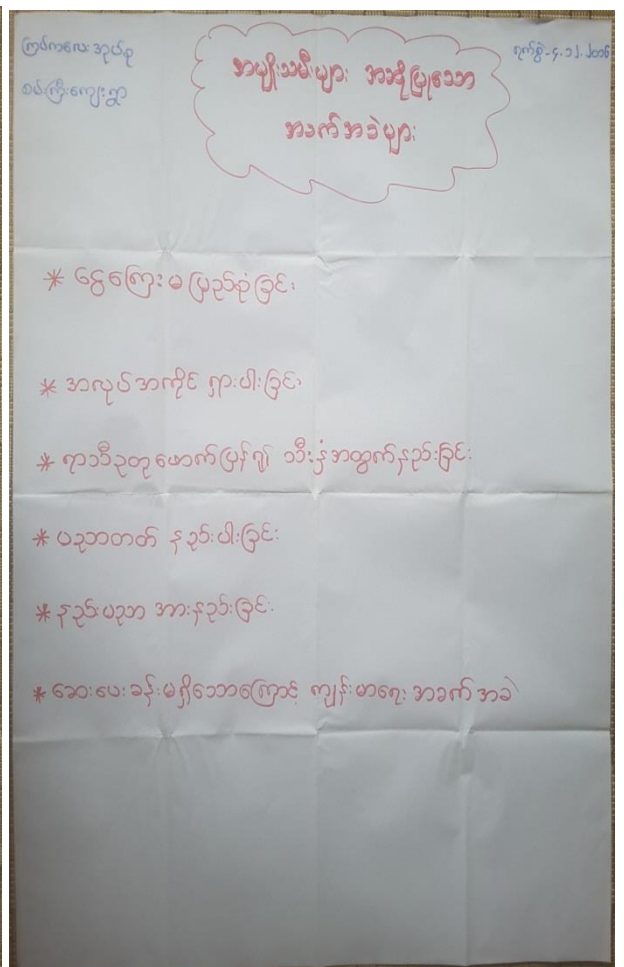 ကြပ်ကလေးအုပ်စု
စမ်းကြီးကျေးရွာ
ရက်စွဲ-၄.၁၂.၂၀၁၆
အမျိုးသမီးများ အဆိုပြုသော
အခက်အခဲများ
* ငွေကြေးမပြည့်စုံခြင်း
* အလုပ်အကိုင် ရှားပါးခြင်း
* ရာသီဥတုဖောက်ပြန်၍ သီးနှံအထွက်နည်းခြင်း
* ပညာတတ် နည်းပါးခြင်း
* နည်းပညာ အားနည်းခြင်း
* ဆေးပေးခန်းမရှိသောကြောင့် ကျန်းမာရေး အခက်အခဲ